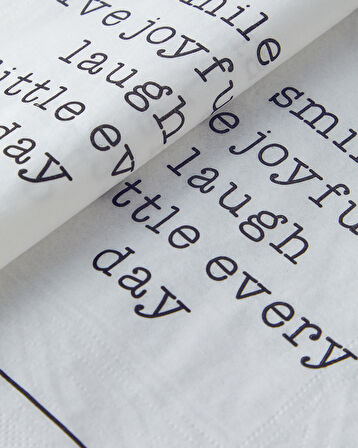 smile
ve joyfu
laugh
little eve
day
smil
e joyfu
laugh
ttle every
day